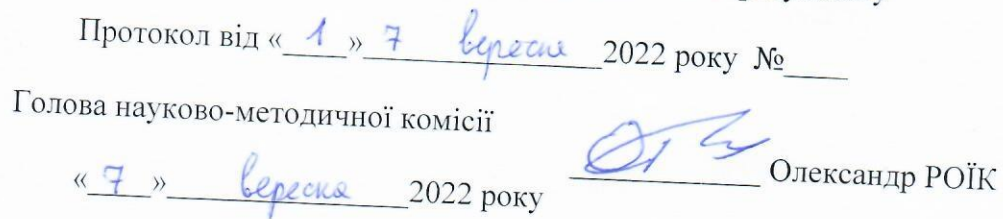 Протокол від «1» 7 вересня 2022 року №____
Голова науково-методичної комісії
«7» вересня 2022 року ________ Олександр РОЇК